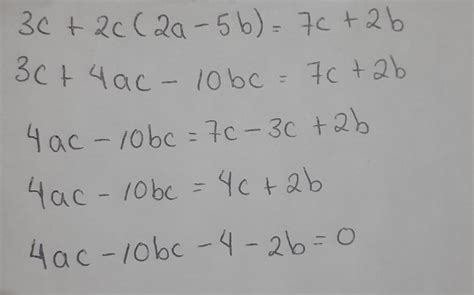 3c + 2c(2a - 5b) = 7c + 2b
3c + 4ac - 10bc = 7c + 2b
4ac - 10bc = 7c - 3c + 2b
4ac - 10bc = 4c + 2b
4ac - 10bc - 4 - 2b = 0